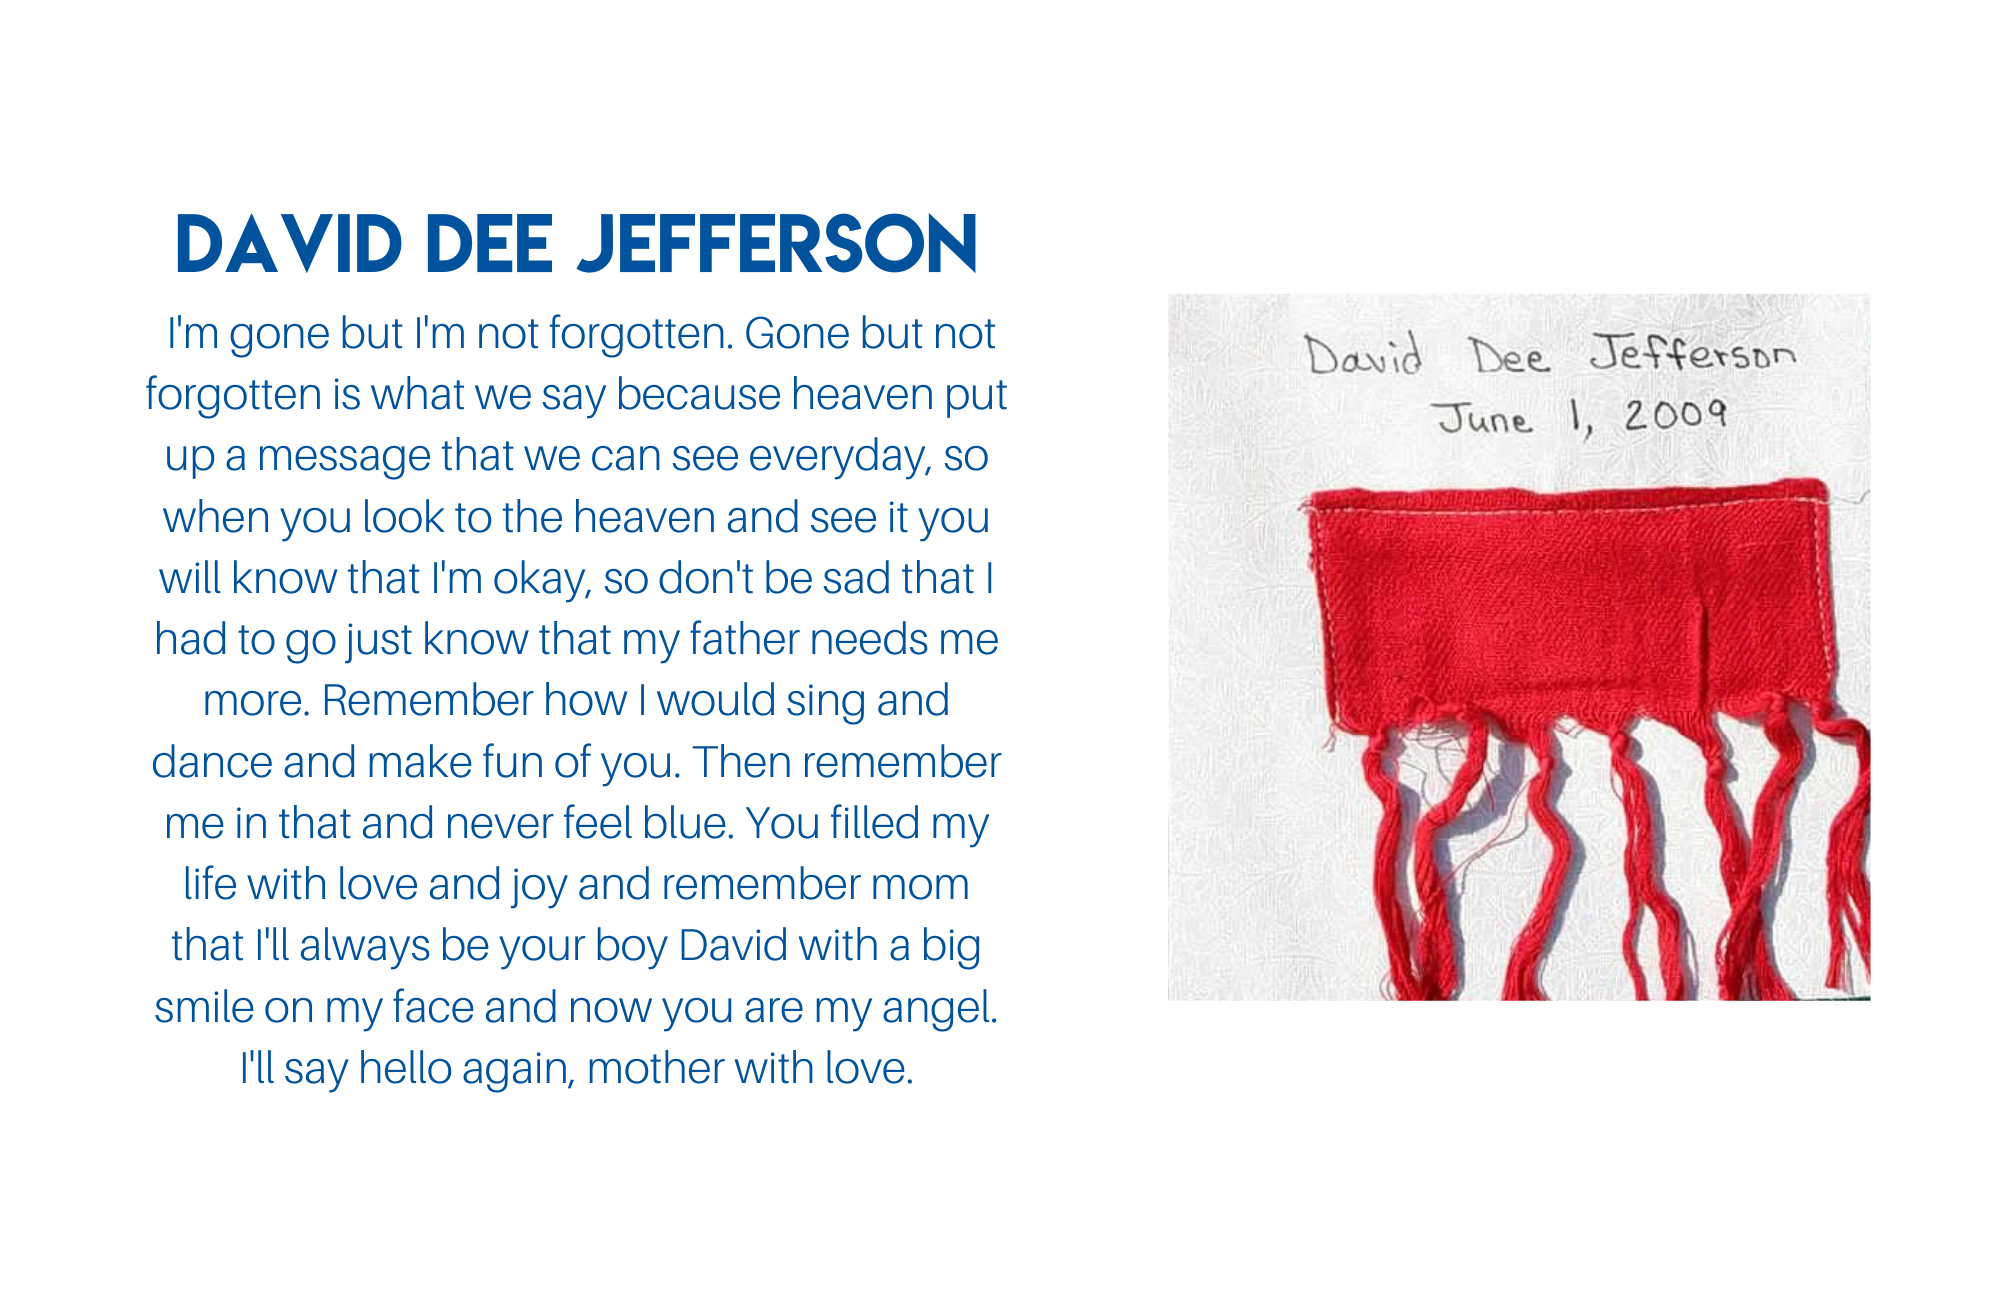 DAVID DEE JEFFERSON
I'm gone but I'm not forgotten. Gone but not
forgotten is what we say because heaven put
up a message that we can see everyday, so
when you look to the heaven and see it you
will know that I'm okay, so don't be sad that I
had to go just know that my father needs me
more. Remember how I would sing and
dance and make fun of you. Then remember
me in that and never feel blue. You filled my
life with love and joy and remember mom
that I'll always be your boy David with a big
smile on my face and now you are my angel.
I'll say hello again, mother with love.
David Dee Jefferson
June 1, 2009